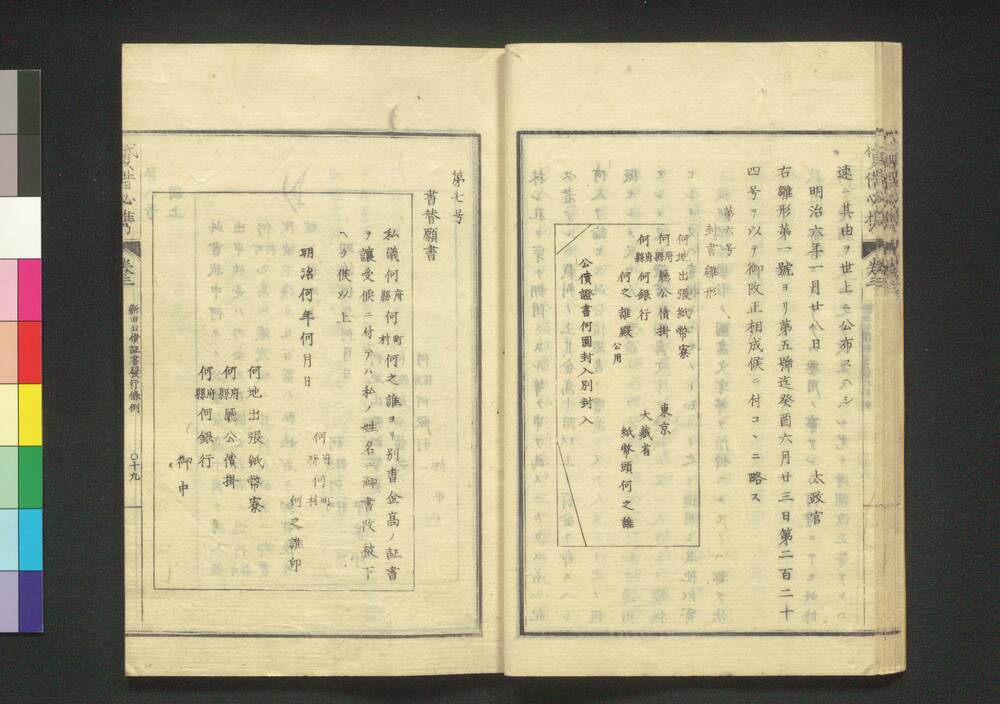 速ニ其由ヲ世上ニ公布スヘシ
明治六年一月廿八日 太政官
右雛形第一號ヨリ第五號迄癸酉六月廿三日第二百二十
四号ヲ以テ御改正相成候ニ付コヽニ略ス
第六号
封書雛形
何地出張紙幣寮
何府縣廳公債掛
何府縣何銀行
何之誰殿 公用
東京
大藏省
紙幣頭何之誰
公債證書何圓封入別封
第七号
書替願書
私儀何府縣何町村何之誰ヨリ別書金高ノ証書
ヲ讓受候ニ付テハ私ノ姓名ニ御書改被下
度候以上
明治何年何月日
何府縣何町村
何之誰印
何地出張紙幣寮
何府縣廳公債掛
何府縣何銀行
御中
貸借必携
卷三
新旧公債証書發行條例
〇十九